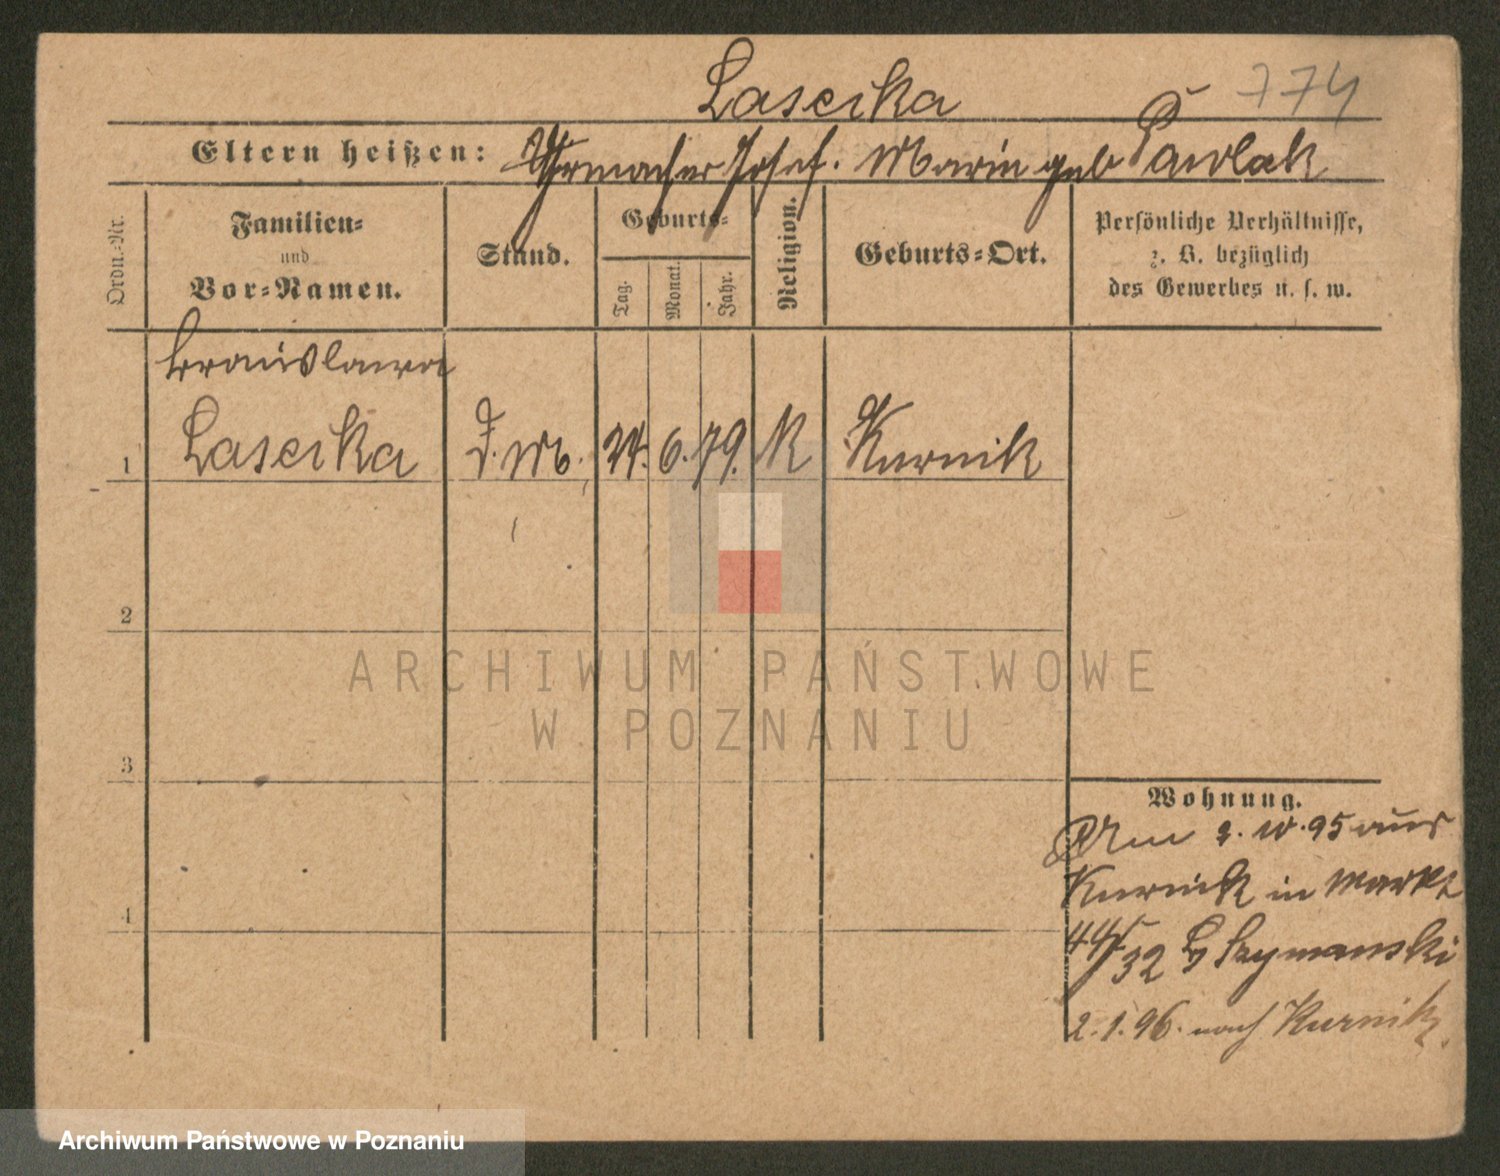 Laseika 774
Eltern heißen: Uhrmacher Josef. Marin geb Pawlak
Ordn.-Nr.
Familien-
und
Vor-Namen.
Stand.
Geburts-
Tag.
Monat.
Jahr.
Religion.
Geburts-Ort.
Persönliche Verhältnisse,
z. B. bezüglich
des Gewerbes u. s. w.
Bronislawa
1 Laseika D. M. 24. 6. 79. K Kurnik
2
3
4
Wohnung.
Am 2. 10. 95 aus
Kurnik in Markt
44/32 b Szymanski
2. 1. 96. nach Kurnik.
ARCHIWUM PAŃSTWOWE
W POZNANIU
Archiwum Państwowe w Poznaniu